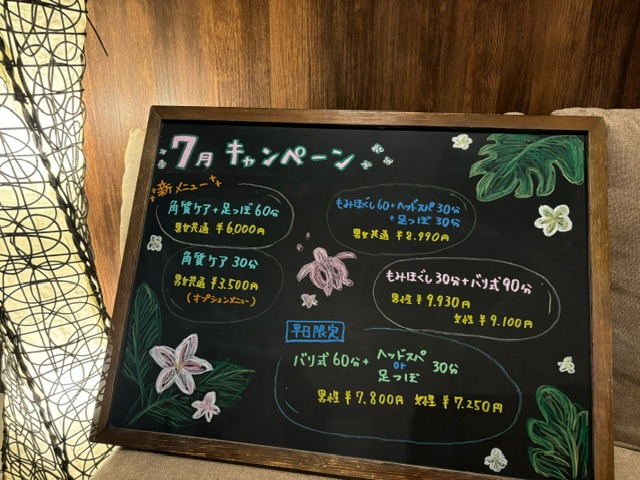 7月 キャンペーン
新メニュー
角質ケア+足つぼ60分
男女共通 ¥6,000円
角質ケア 30分
男女共通 ¥3,500円
(オプションメニュー)
もみほぐし60+ヘッドスパ30分
+足つぼ 30分
男女共通 ¥8,990円
もみほぐし30分+バリ式90分
男性 ¥9,930円
女性 ¥9,100円
平日限定
バリ式60分+ ヘッドスパ or 足つぼ 30分
男性¥7,800円 女性 ¥7,250円